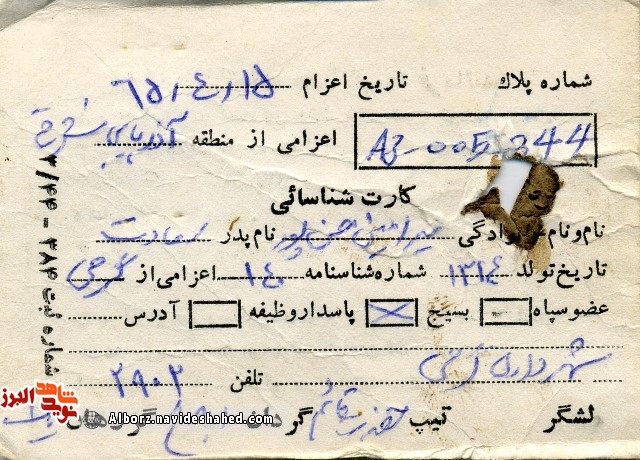 شماره پلاك تاریخ اعزام ٦٥،٤،١٥
A3-005344 اعزامی از منطقه آذربایجان شرقی
کارت شناسائی
نام و نام خانوادگی میر امین حسن پور نام پدر سعادت
تاریخ تولد ۱۳۱٤ شماره شناسنامه ۱٤ اعزامی از کرجی
عضو سپاه بسیج پاسدار وظیفه آدرس
شهرداری تلفن ۲۹۰۲
لشگر تیپ گردان گروهان
شماره ثبت ۳۸۴ - ۳/۴۴
شاهد نوید البرز
Alborz.navideshahed.com